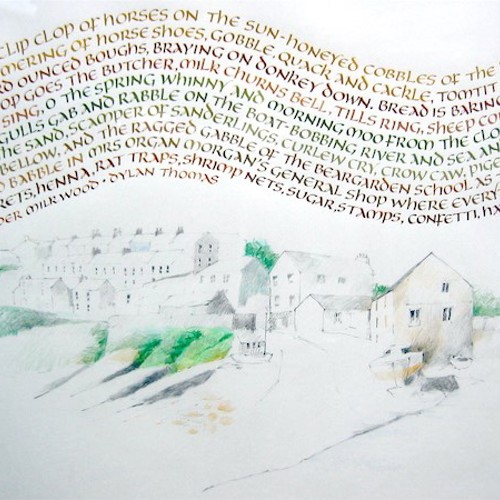 CLIP CLOP OF HORSES ON THE SUN-HONEYED COBBLES OF THE
MERING OF HORSE SHOES, GOBBLE QUACK AND CACKLE, TOMTIT
RD OUNCED BOUGHS, BRAYING ON DONKEY DOWN. BREAD IS BAKING
OP GOES THE BUTCHER, MILK CHURNS BELL, TILLS RING, SHEEP COU
SING, O THE SPRING WHINNY AND MORNING MOO FROM THE CLO
GULLS GAB AND RABBLE ON THE BOAT-BOBBING RIVER AND SEA AND
THE SAND, SCAMPER OF SANDERLINGS, CURLEW CRY, CROW CAW, PIG
BELLOW, AND THE RAGGED GABBLE OF THE BEARGARDEN SCHOOL. AS
D BABBLE IN MRS ORGAN MORGAN'S GENERAL SHOP WHERE EVERY
RETS, HENNA, RAT TRAPS, SHRIMP NETS, SUGAR, STAMPS, CONFETTI, HA
DER MILK WOOD · DYLAN THOMAS